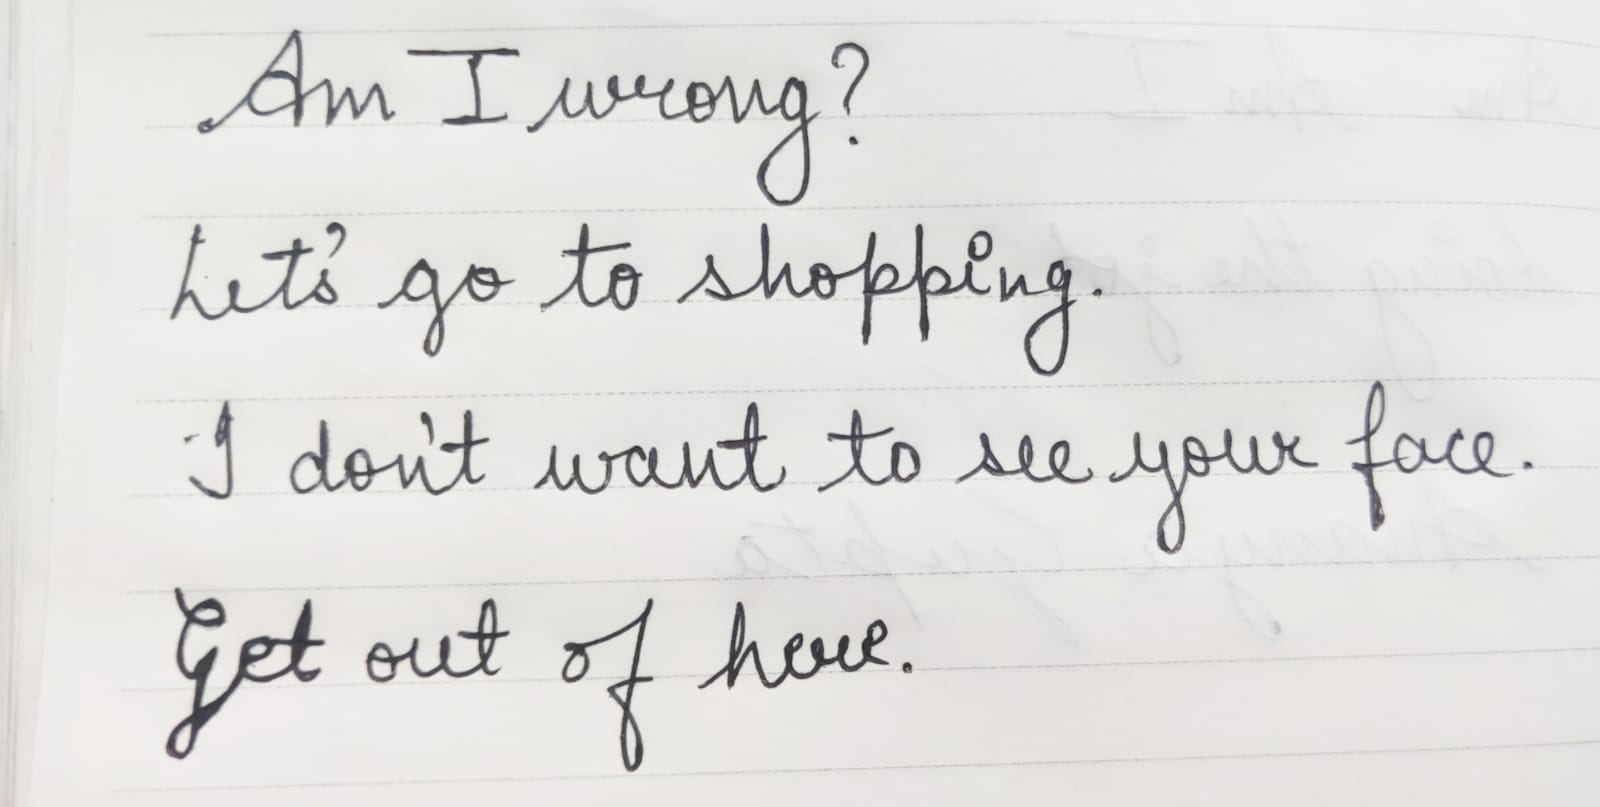 Am I wrong?
Let's go to shopping.
I don't want to see your face.
Get out of here.